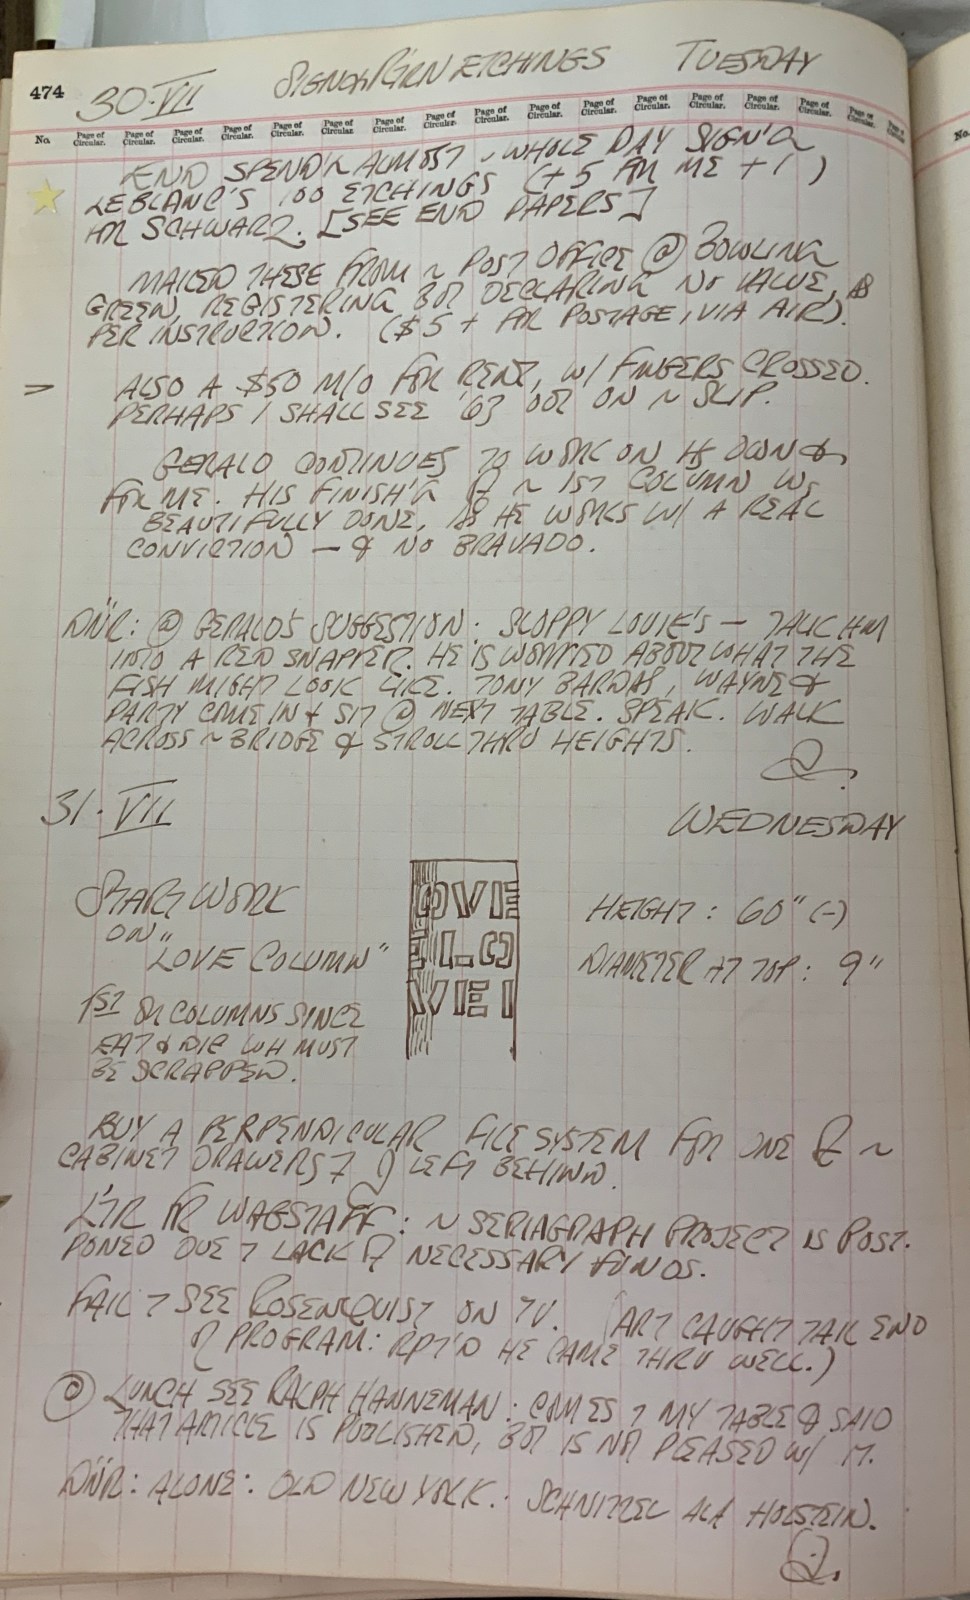 474
30·VII SIGN ETCHINGS TUESDAY
No. Page of Circular. Page of Circular. Page of Circular. Page of Circular. Page of Circular. Page of Circular. Page of Circular. Page of Circular. Page of Circular. Page of Circular. Page of Circular. Page of Circular. Page of Circular. Page of Circular. Page of Circular. Page of
END SPEND'G ALMOST ~ WHOLE DAY SIGN'G
LEBLANC'S 100 ETCHINGS (+5 FR ME +1)
FR SCHWARZ. [SEE END PAPERS]
MAILED THESE FROM ~ POST OFFICE @ BOWLING
GREEN, REGISTERING BUT DECLARING NO VALUE, AS
PER INSTRUCTION. ($5 + FR POSTAGE, VIA AIR).
> ALSO A $50 M/O FOR RENT, W/ FINGERS CROSSED.
PERHAPS I SHALL SEE '63 OUT ON ~ SLIP.
GERALD CONTINUES TO WORK ON HS OWN &
FOR ME. HIS FINISH'G OF ~ 1ST COLUMN WS
BEAUTIFULLY DONE, AS HE WORKS W/ A REAL
CONVICTION — & NO BRAVADO.
DN'R: @ GERALD'S SUGGESTION: SLOPPY LOUIE'S — TALK HM
INTO A RED SNAPPER. HE IS WORRIED ABOUT WHAT THE
FISH MIGHT LOOK LIKE. TONY BARDAS, WAYNE &
PARTY COME IN & SIT @ NEXT TABLE. SPEAK. WALK
ACROSS ~ BRIDGE & STROLL THRU HEIGHTS.
31·VII WEDNESDAY
START WORK
ON
"LOVE COLUMN"
1ST OR COLUMNS SINCE
EAT & DIE WH MUST
BE SCRAPPED.
OVE
ELO
VEL
HEIGHT: 60" (-)
DIAMETER AT TOP: 9"
BUY A PERPENDICULAR FILE SYSTEM FOR ONE OF ~
CABINET DRAWERS LEFT BEHIND.
L'TR FR WAGSTAFF: ~ SERIAGRAPH PROJECT IS POST-
PONED DUE T LACK OF NECESSARY FUNDS.
FAIL T SEE ROSENQUIST ON TV. (ART CAUGHT TAIL END
OF PROGRAM: RPT'D HE CAME THRU WELL.)
@ LUNCH SEE RALPH HANNEMAN: COMES T MY TABLE & SAID
THAT ARTICLE IS PUBLISHED, BUT IS NOT PLEASED W/ IT.
DN'R: ALONE: OLD NEW YORK: SCHNITZEL ALA HOLSTEIN.